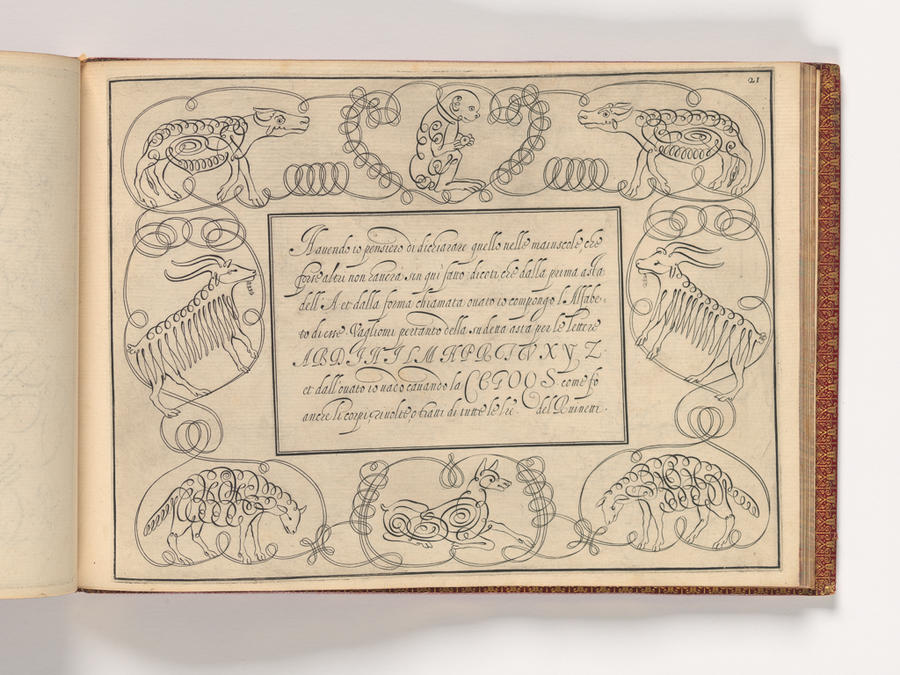 21
Hauendo io pensiero di dichiarare quello nelle maiuscole, che
forse altri non hauerà sin quì fatto, diceti che dalla prima asta
dell'A et dalla forma chiamata ouato io compongo l'Alfabe-
to di esse. Vagliomi pertanto della sudetta asta per le lettere
A B D F H I L M N P R T V X Y Z.
et dall'ouato io uado cauando la C E G O Q S. come fo
ancre li corpi, riuolte, o tratti di tutte le lre. del Ruinetti.